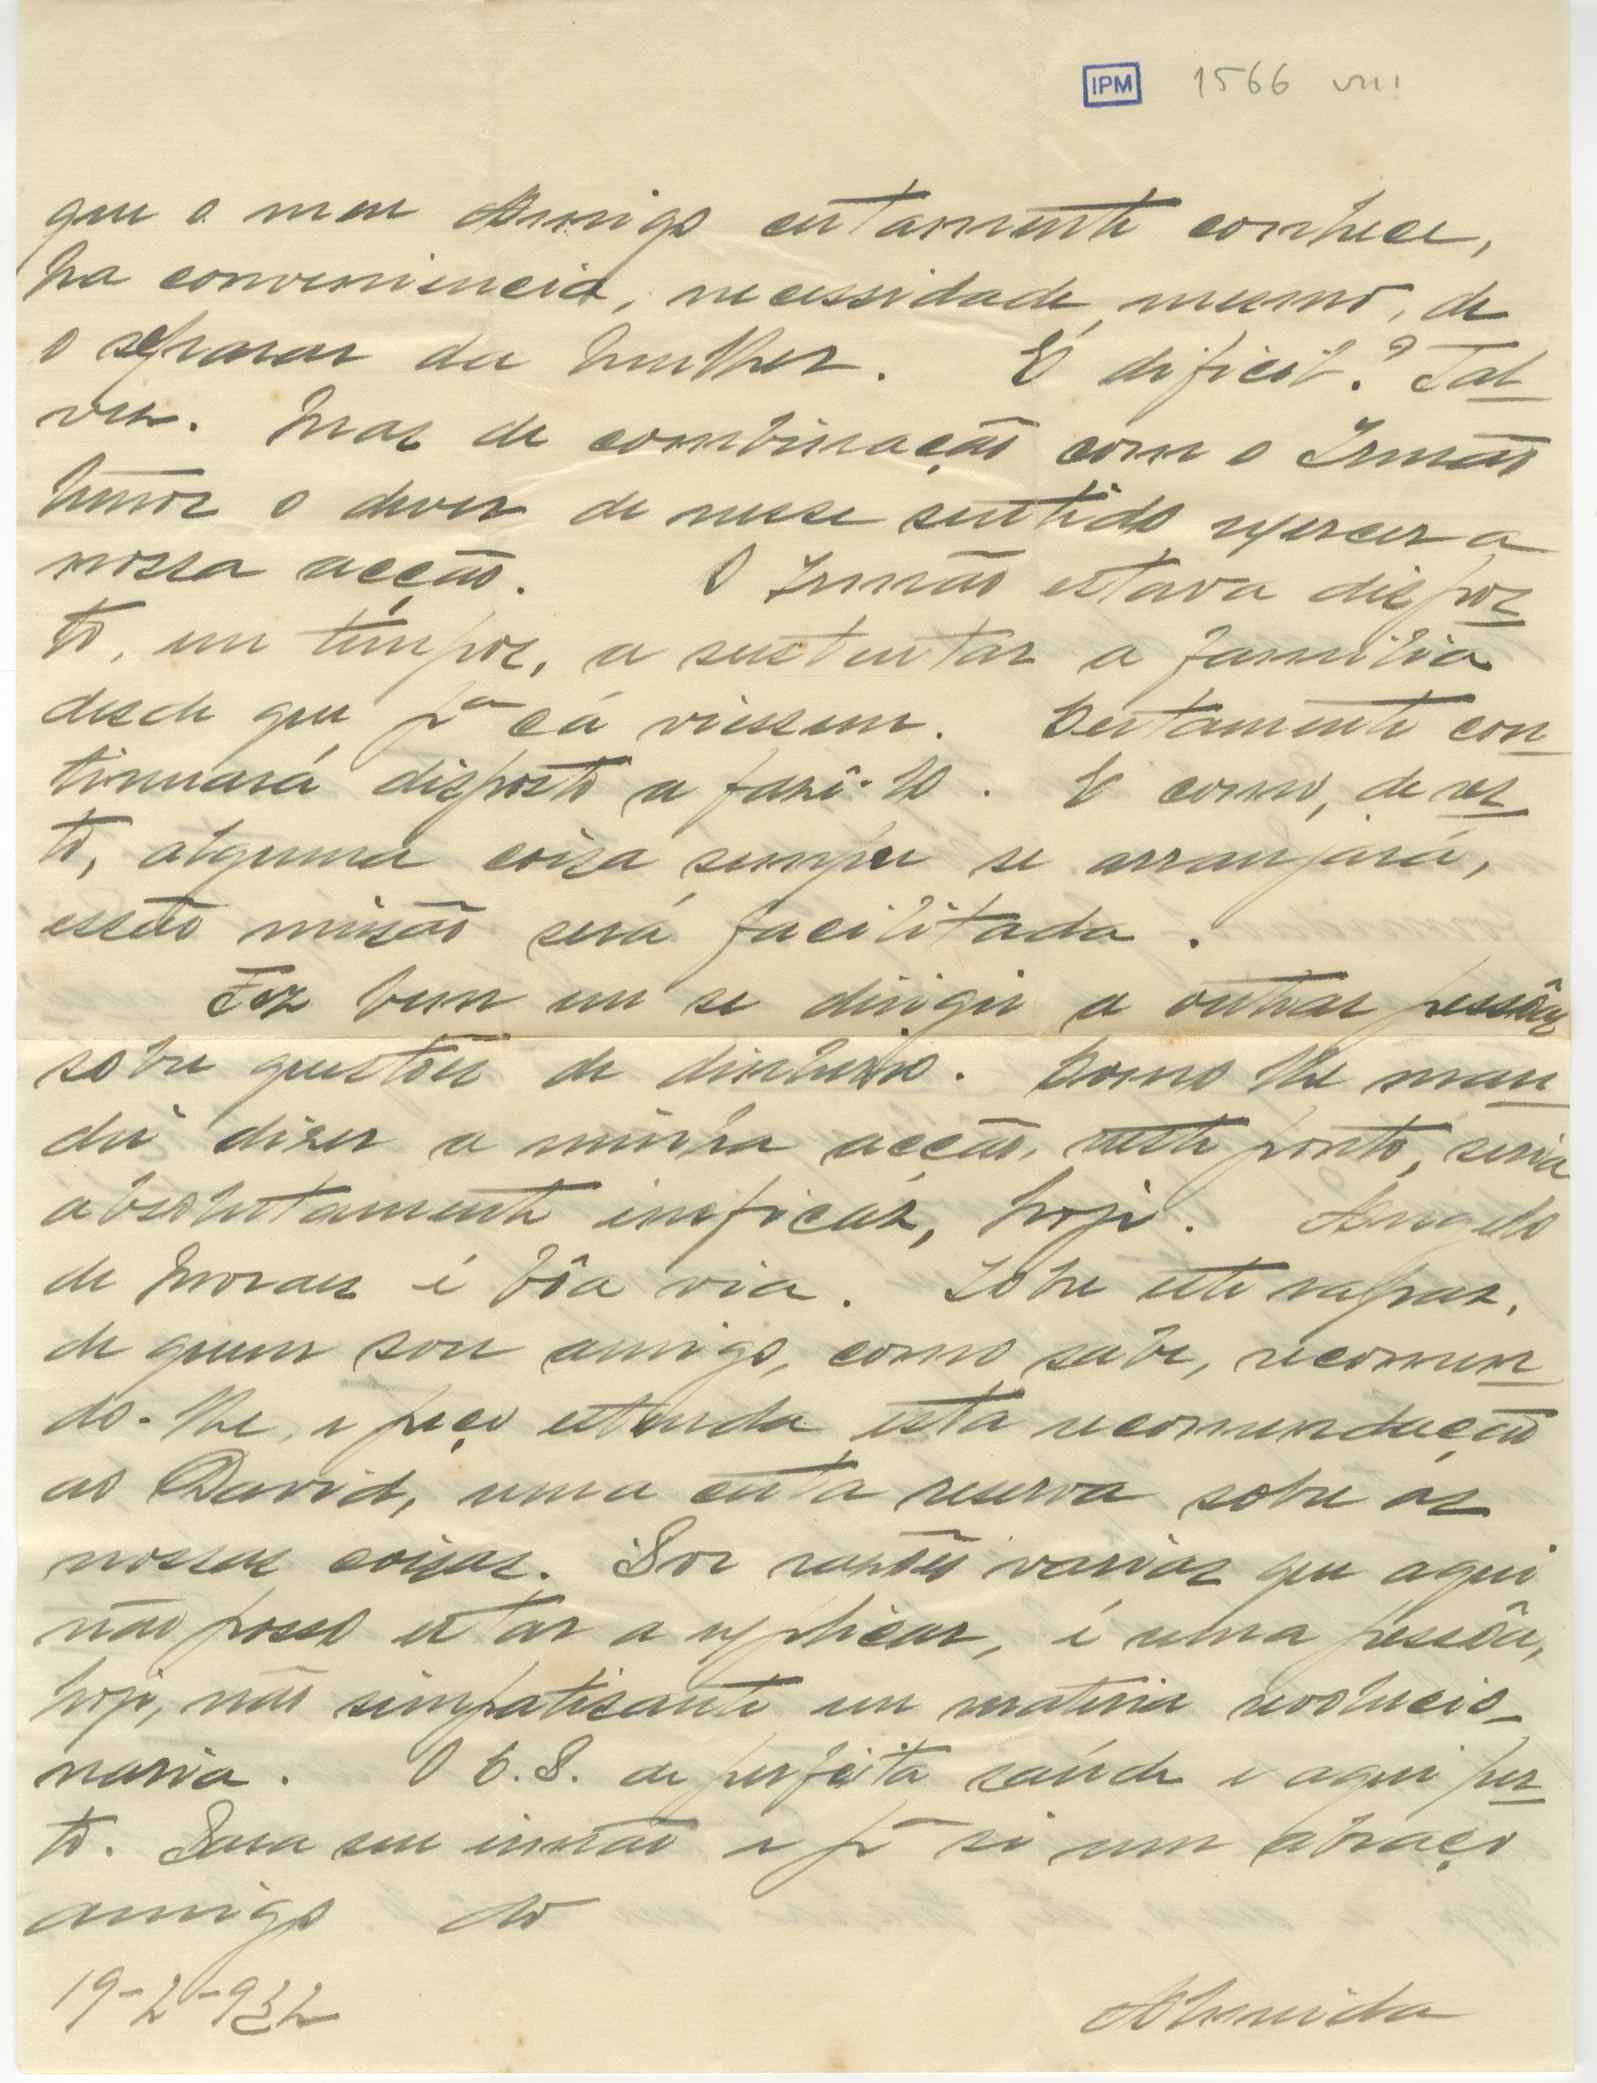 IPM 1566 VIII
que o meu Amigo certamente conhece,
ha conveniencia, necessidade mesmo, de
o separar da mulher. É dificil? Tal-
vez. Mas de combinação com o Irmão
temos o dever de nesse sentido exercer a
nossa acção. O Irmão estava dispos-
to, em tempos, a sustentar a familia
desde que pª cá viessem. Certamente con-
tinuará disposto a fazê-lo. E como, de res-
to, alguma coisa sempre se arranjará,
essa missão será facilitada.
Fez bem em se dirigir a outras pessôas
sobre questões de dinheiro. Como lhe man-
dei dizer a minha acção, neste ponto, seria
absolutamente ineficáz, hoje. Angelo
de Moraes é bôa via. Sobre este rapaz,
de quem sou amigo, como sabe, recomen-
do-lhe, e peço estenda esta recomendação
ao David, uma certa reserva sobre as
nossas coisas. Por razões varias que aqui
não posso estar a explicar, é uma pessôa,
hoje, não simpatisante em materia revolucio-
naria. O C.S. de perfeita saúde e aqui per-
to. Para seu irmão e pª si um abraço
amigo do
19-2-932 Almeida